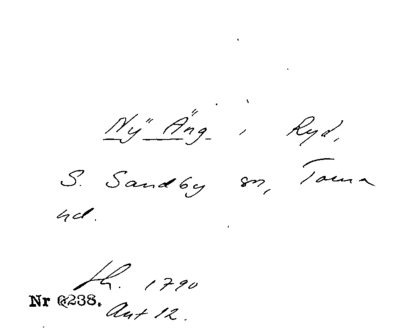 Ny" Äng, Ryd,
S. Sandby sn, Torna
hd.
th. 1790
Nr 6238. Akt 12.